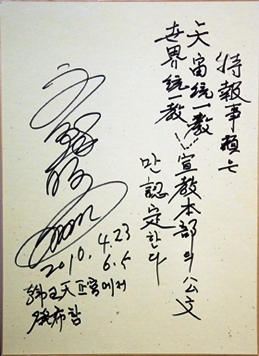 特報事項은
天宙統一教
世界統一教
宣教本部의公文
만認定한다
2010. 4.23
6.5
天正宮에서